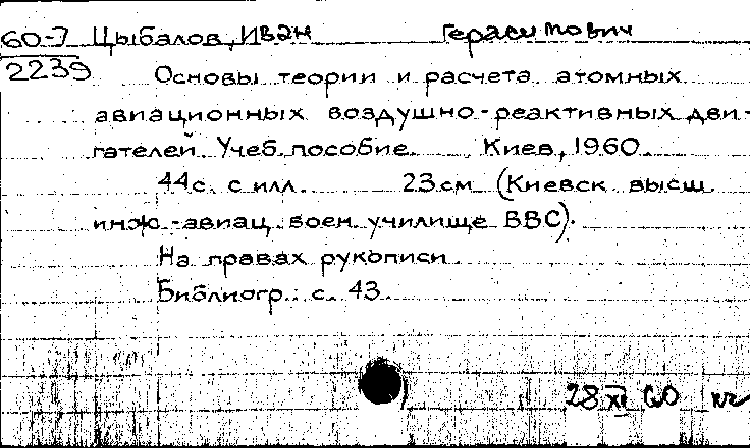 60-7 Цыбалов, Иван Герасимович
2239 Основы теории и расчета атомных
авиационных воздушно-реактивных дви-
гателей Учеб. пособие. Киев, 1960.
44 с. с илл. 23 см (Киевск. высш.
инж.-авиац. воен. училище ВВС).
На правах рукописи
Библиогр.: с. 43.
28 XI 60